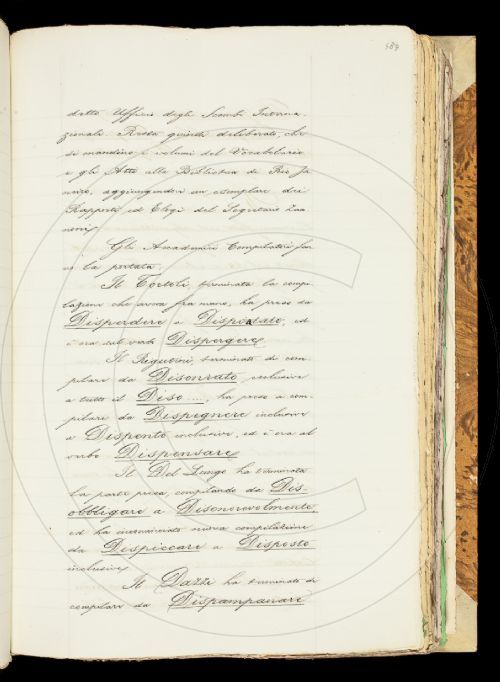 389
detto Ufficio degli Scambi Interna-
zionali. Resta quindi deliberato che
si mandino i volumi del Vocabolario
e gli Atti alla Biblioteca di Rio Ja
neiro, aggiungendovi un esemplare dei
Rapporti ed Elogi del Segretario Zan
noni.
Gli Accademici Compilatori fan
no la portata.
Il Tortoli, terminata la compi-
lazione che aveva fra mano, ha preso da
Disperdere a Dispodare, ed
è ora sul verbo Dispergere.
Il Rigutini, terminato di com-
pilare da Disonrato inclusive
a tutto il Diso...., ha preso a com-
pilare da Dispignere inclusive
a Disponto inclusive, ed è ora al
verbo Dispensare.
Il Del Lungo ha terminata
la parte presa, compilando da Dis-
obbligare a Disonorevolmente,
ed ha incominciato nuova compilazione
da Dispiccare a Disposto
inclusive.
Il Dazzi ha terminato di
compilare da Dispampanare